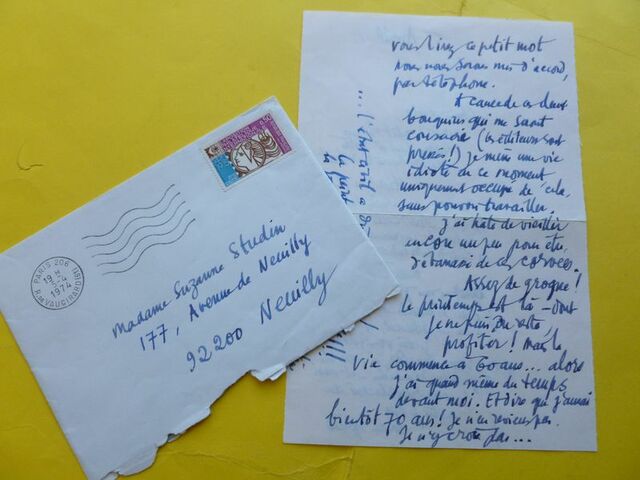 PARIS 206 (18)
19 H
2-4
1974
R.M VAUGIRARD
Madame Suzanne Studin
177, Avenue de Neuilly
92200 Neuilly
vous lirez ce petit mot
nous nous serons mis d'accord,
par téléphone.
A cause de ces deux
bouquins qui me sont
consacrés (les éditeurs sont
pressés!) je mène une vie
idiote en ce moment
uniquement occupé de cela,
sans pouvoir travailler.
J'ai hâte de vieillir
encore un peu pour être
débarrassé de ces corvées.
Assez de grogne!
Le printemps est là – dont
je ne puis du reste,
profiter! Mais la
vie commence à 60 ans... alors
j'ai quand même du temps
devant moi. Et dire que j'aurai
bientôt 70 ans! Je n'en reviens pas.
Je n'y crois pas...